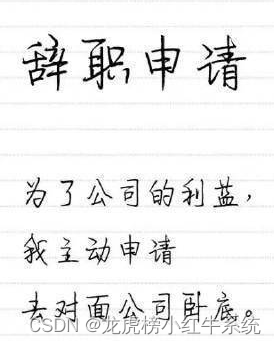 辞职申请
为了公司的利益，
我主动申请
去对面公司卧底。
CSDN @龙虎榜小红牛系统